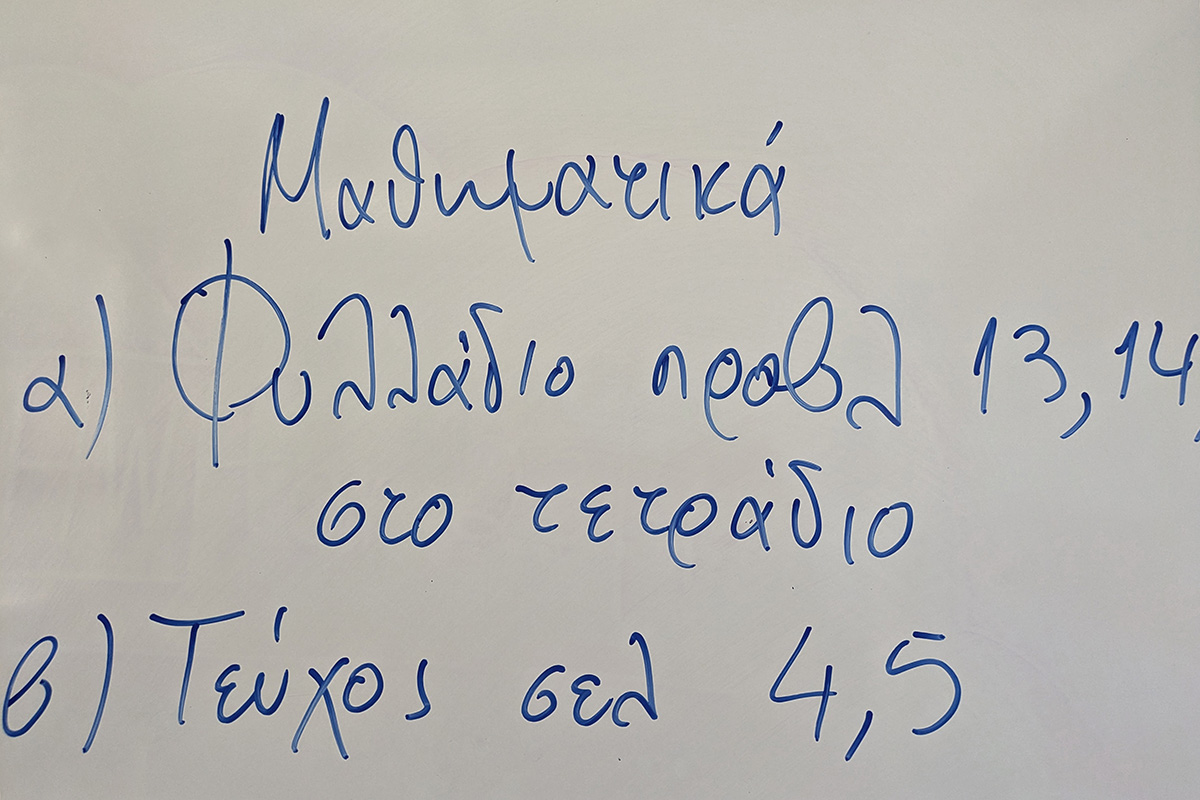 Μαθηματικά
α) Φυλλάδιο προβλ 13, 14,
στο τετράδιο
β) Τεύχος σελ 4, 5